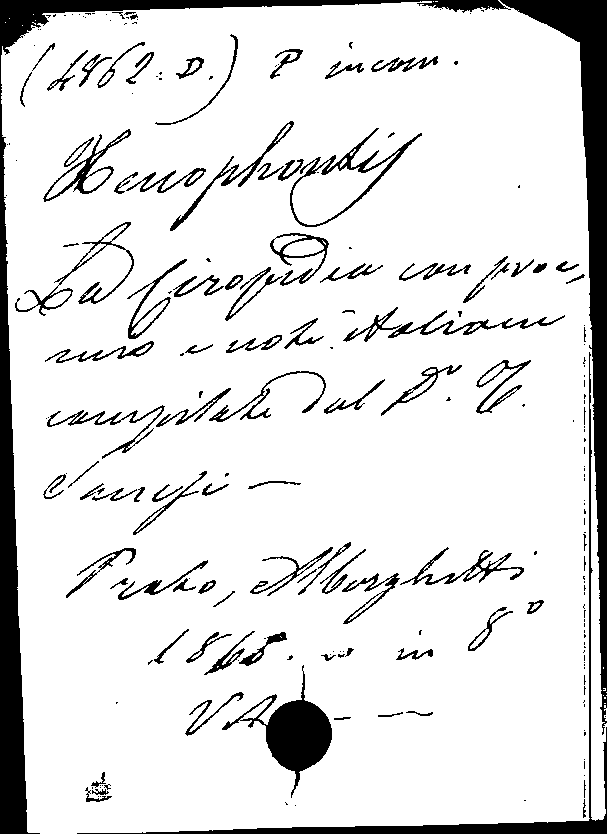 (4862. D.) P incom.
Xenophontis
La Ciropedia con proe,
mio e note italiane
compilate dal Dr. T.
Sanesi —
Prato, Alberghetti
1865. in 8º